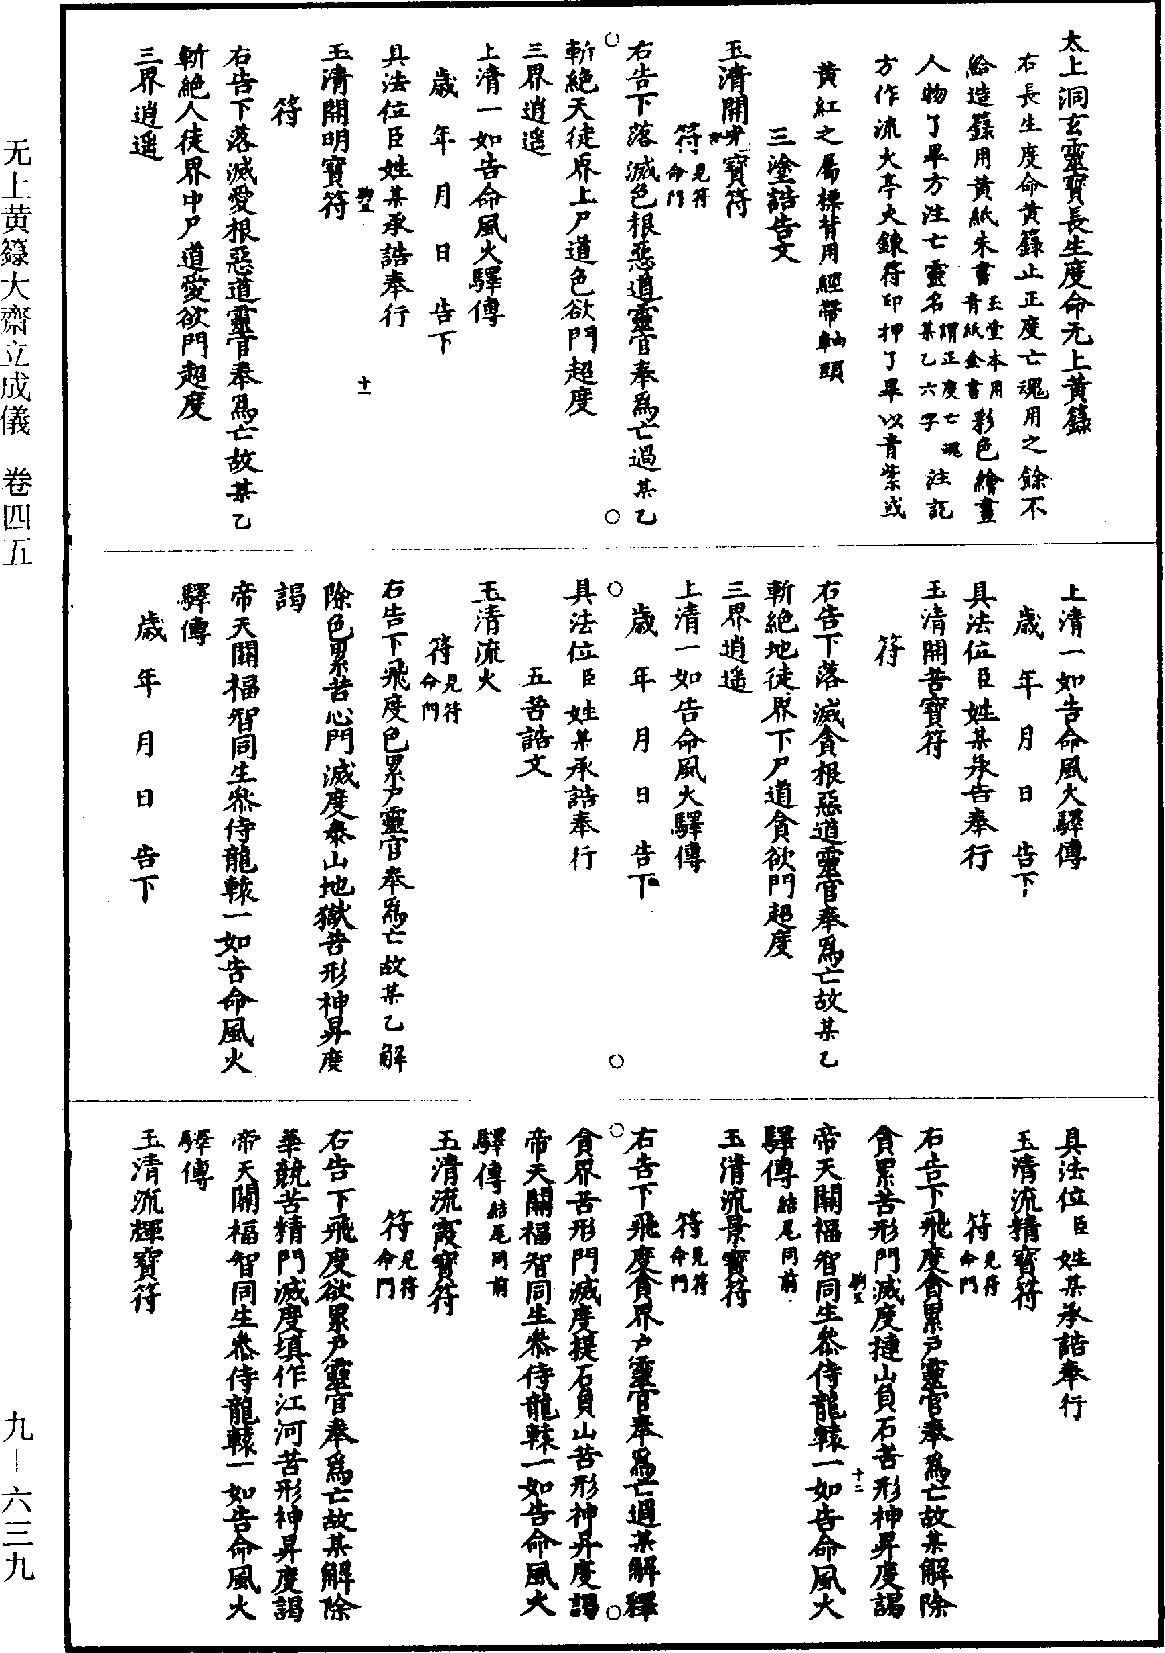 太上洞玄靈寶長生度命无上黃籙
右長生度命黃籙止正度亡魂用之餘不
給造籙用黃紙朱書玉堂本用青紙金書彩色繪畫
人物了畢方注亡靈名謂正度亡魂某乙六字注訖
方作流火亭火鍊符印押了畢以青紫或
黃紅之屬標背用經帶軸頭
三塗誥告文
玉清開光寶符
符見符命門
右告下落滅色根惡道靈官奉爲亡過某乙
斬絕天徒界上尸道色欲門超度
三界逍遥
上清一如告命風火驛傳
歲年月日告下
具法位臣姓某承誥奉行
十一
玉清開明寶符
符
右告下落滅愛根惡道靈官奉爲亡故某乙
斬絕人徒界中尸道愛欲門超度
三界逍遥
上清一如告命風火驛傳
歲年月日告下
具法位臣姓某承告奉行
玉清開苦寶符
符
右告下落滅貪根惡道靈官奉爲亡故某乙
斬絕地徒界下尸道貪欲門超度
三界逍遥
上清一如告命風火驛傳
歲年月日告下
具法位臣姓某承誥奉行
五苦誥文
玉清流火
符見符命門
右告下飛度色累尸靈官奉爲亡故某乙解
除色累苦心門滅度泰山地獄苦形神昇度
謁
帝天闕福智同生叅侍龍轅一如告命風火
驛傳
歲年月日告下
具法位臣姓某承誥奉行
玉清流精寶符
符見符命門
右告下飛度貪累尸靈官奉爲亡故某解除
貪累苦形門滅度撻山負石苦形神昇度謁
十二
帝天闕福智同生叅侍龍轅一如告命風火
驛傳結尾同前
玉清流景寶符
符見符命門
右告下飛度貪界尸靈官奉爲亡過某解釋
貪界苦形門滅度提石負山苦形神昇度謁
帝天闕福智同生叅侍龍轅一如告命風火
驛傳結尾同前
玉清流霞寶符
符見符命門
右告下飛度欲累尸靈官奉爲亡故某解除
華競苦精門滅度填作江河苦形神昇度謁
帝天闕福智同生叅侍龍轅一如告命風火
驛傳
玉清流輝寶符
无上黄籙大齋立成儀　卷四五
九－六三九